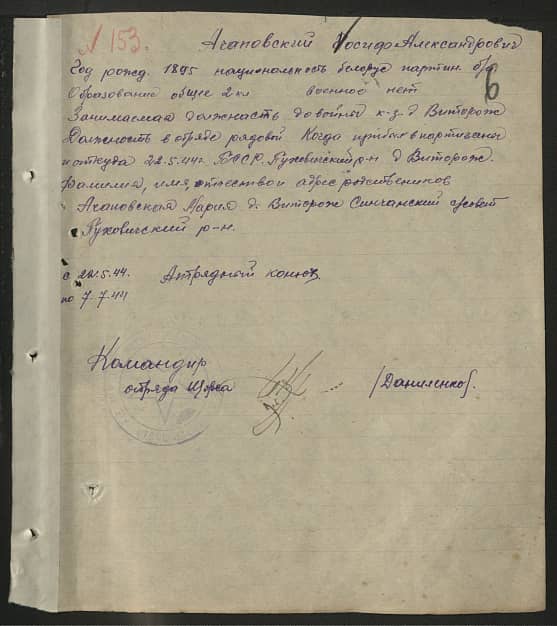 N 153.
Агановский Иосиф Александрович
Год рожд. 1895 национальность белорус партин. б/п
6
Образование общее 2 кл военное нет
Занимаемая должность до войны к-з. д Витореж
Должность в отряде рядовой Когда прибыл в партизаны
и откуда 22.5.44г. БССР. Пуховичский р-н д Витореж.
Фамилия, имя, отчество и адрес родственников
Агановская Мария д. Витореж Синчанский с/совет
Пуховичский р-н.
с 22.5.44. Атрядный конюх
по 7.7.44
Командир
отряда Щорса /Даниленко/.